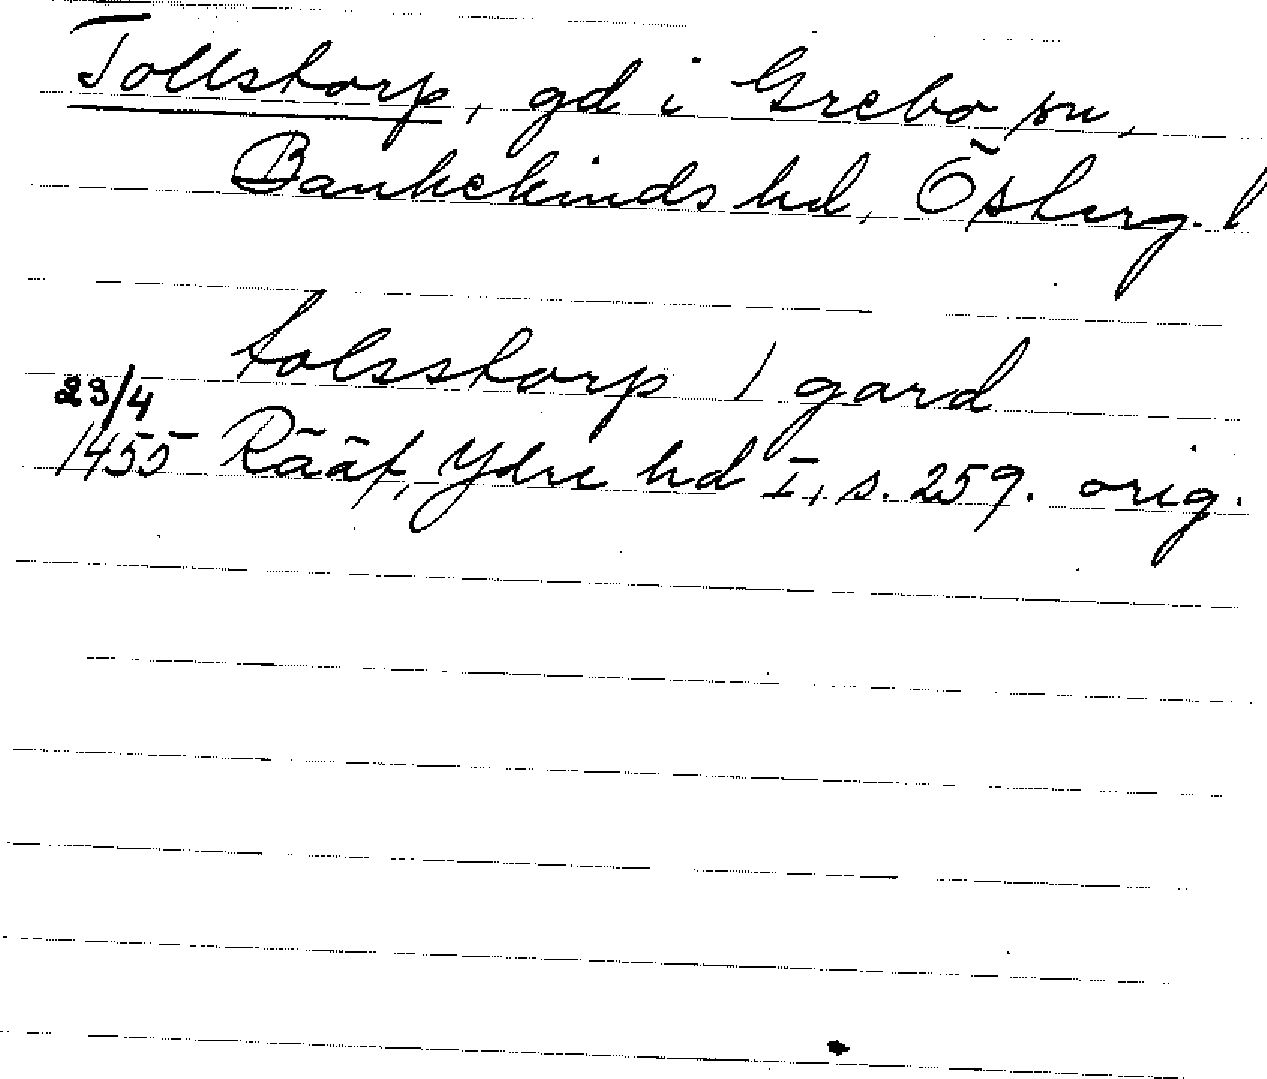 Tollstorp, gd i Grebo sn,
Bankekinds hd, Östерg. l
tolsstorp 1 gard
23/4
1455 Rääf, Ydre hd I, s. 259. orig.